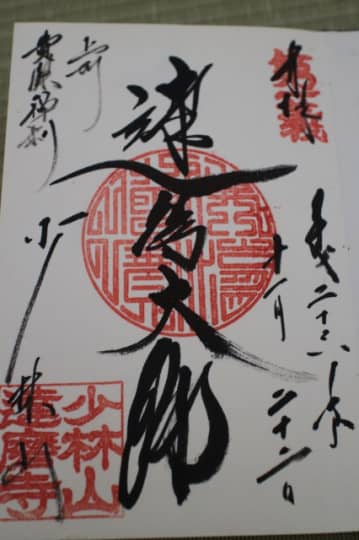 奉拝
平成二十六年
十一月
二十二日
達磨大師
上州
黄檗禅刹
少林山
少林山
達磨寺